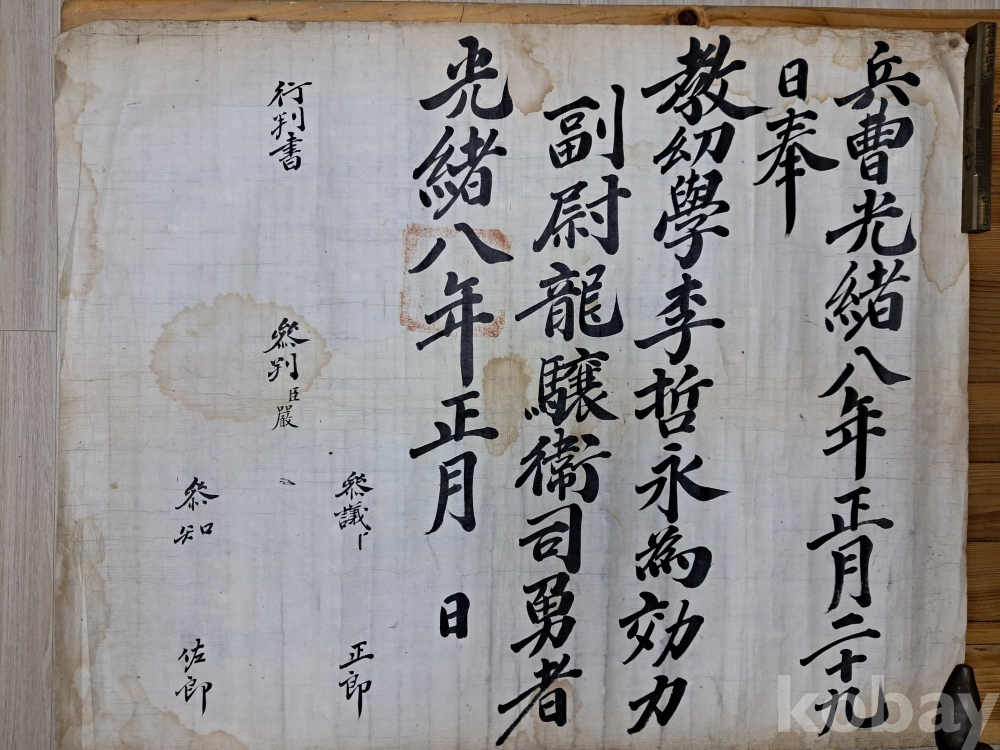 兵曹光緒八年正月二十九
日奉
教幼學李哲永為効力
副尉龍驤衛司勇者
光緒八年正月 日
行判書
參判臣嚴
參議
參知
正郎
佐郎
kobay